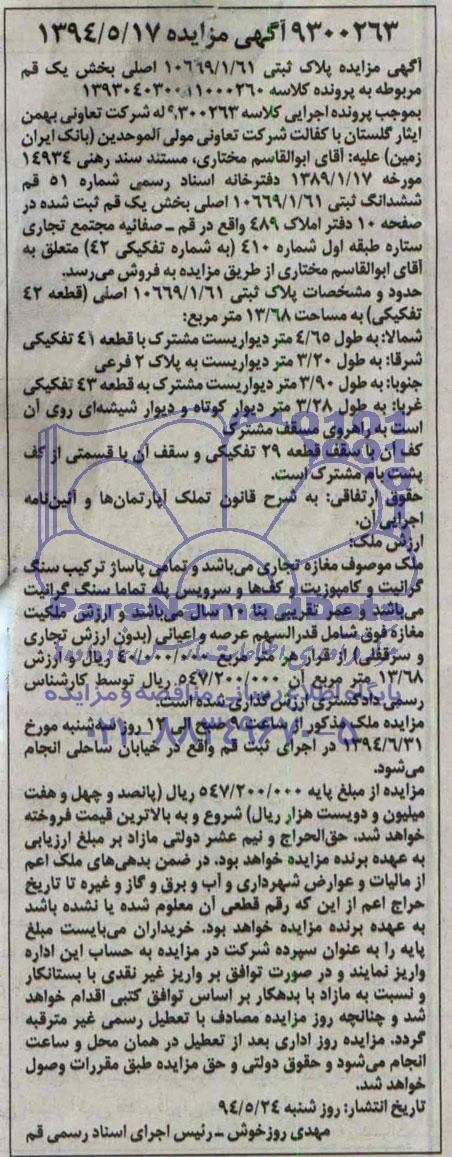 ۹۳۰۰۲۶۳ آگهی مزایده ۱۳۹۴/۵/۱۷
آگهی مزایده پلاک ثبتی ۱۰۶۶۹/۱/۶۱ اصلی بخش یک قم
مربوطه به پرونده کلاسه ۱۳۹۳۰۴۰۳۰۰۱۱۰۰۰۲۶۰
بموجب پرونده اجرایی کلاسه ۹۳۰۰۲۶۳ له شرکت تعاونی بهمن
ایثار گلستان با کفالت شرکت تعاونی مولی الموحدین (بانک ایران
زمین) علیه: آقای ابوالقاسم مختاری، مستند سند رهنی ۱۴۹۳۴
مورخه ۱۳۸۹/۱/۱۷ دفترخانه اسناد رسمی شماره ۵۱ قم
ششدانگ ثبتی ۱۰۶۶۹/۱/۶۱ اصلی بخش یک قم ثبت شده در
صفحه ۱۰ دفتر املاک ۴۸۹ واقع در قم ـ صفائیه مجتمع تجاری
ستاره طبقه اول شماره ۴۱۰ (به شماره تفکیکی ۴۲) متعلق به
آقای ابوالقاسم مختاری از طریق مزایده به فروش می‌رسد.
حدود و مشخصات پلاک ثبتی ۱۰۶۶۹/۱/۶۱ اصلی (قطعه ۴۲
تفکیکی) به مساحت ۱۳/۶۸ متر مربع:
شمالا: به طول ۴/۶۵ متر دیواریست مشترک با قطعه ۴۱ تفکیکی
شرقا: به طول ۳/۲۰ متر دیواریست به پلاک ۲ فرعی
جنوبا: به طول ۳/۹۰ متر دیواریست مشترک به قطعه ۴۳ تفکیکی
غربا: به طول ۳/۲۸ متر دیوار کوتاه و دیوار شیشه‌ای روی آن
است به راهروی مسقف مشترک
کف آن با سقف قطعه ۲۹ تفکیکی و سقف آن با قسمتی از کف
پشت بام مشترک است.
حقوق ارتفاقی: به شرح قانون تملک آپارتمان‌ها و آئین‌نامه
اجرایی آن.
ارزش ملک:
ملک موصوف مغازه تجاری می‌باشد و تمامی پاساژ ترکیب سنگ
گرانیت و کامپوزیت و کف‌ها و سرویس پله تماما سنگ گرانیت
می‌باشد و عمر تقریبی بنا ۱۰ سال می‌باشد و ارزش ملکیت
مغازه فوق شامل قدرالسهم عرصه و اعیانی (بدون ارزش تجاری
و سرقفلی) از قرار هر متر مربع ۴۰/۰۰۰/۰۰۰ ریال و ارزش
۱۳/۶۸ متر مربع آن ۵۴۷/۲۰۰/۰۰۰ ریال توسط کارشناس
رسمی دادگستری ارزش گذاری شده است.
مزایده ملک مذکور از ساعت ۹ صبح الی ۱۲ روز سه‌شنبه مورخ
۱۳۹۴/۶/۳۱ در اجرای ثبت قم واقع در خیابان ساحلی انجام
می‌شود.
مزایده از مبلغ پایه ۵۴۷/۲۰۰/۰۰۰ ریال (پانصد و چهل و هفت
میلیون و دویست هزار ریال) شروع و به بالاترین قیمت فروخته
خواهد شد. حق‌الحراج و نیم عشر دولتی مازاد بر مبلغ ارزیابی
به عهده برنده مزایده خواهد بود. در ضمن بدهی‌های ملک اعم
از مالیات و عوارض شهرداری و آب و برق و گاز و غیره تا تاریخ
حراج اعم از این که رقم قطعی آن معلوم شده یا نشده باشد
به عهده برنده مزایده خواهد بود. خریداران می‌بایست مبلغ
پایه را به عنوان سپرده شرکت در مزایده به حساب این اداره
واریز نمایند و در صورت توافق بر واریز غیر نقدی با بستانکار
و نسبت به مازاد با بدهکار بر اساس توافق کتبی اقدام خواهد
شد و چنانچه روز مزایده مصادف با تعطیل رسمی غیر مترقبه
گردد. مزایده روز اداری بعد از تعطیل در همان محل و ساعت
انجام می‌شود و حقوق دولتی و حق مزایده طبق مقررات وصول
خواهد شد.
تاریخ انتشار: روز شنبه ۹۴/۵/۲۴
مهدی روزخوش ـ رئیس اجرای اسناد رسمی قم
ParsNamadData
پایگاه اطلاع رسانی مناقصه و مزایده
۰۲۱-۸۸۳۴۹۶۷۰-۵